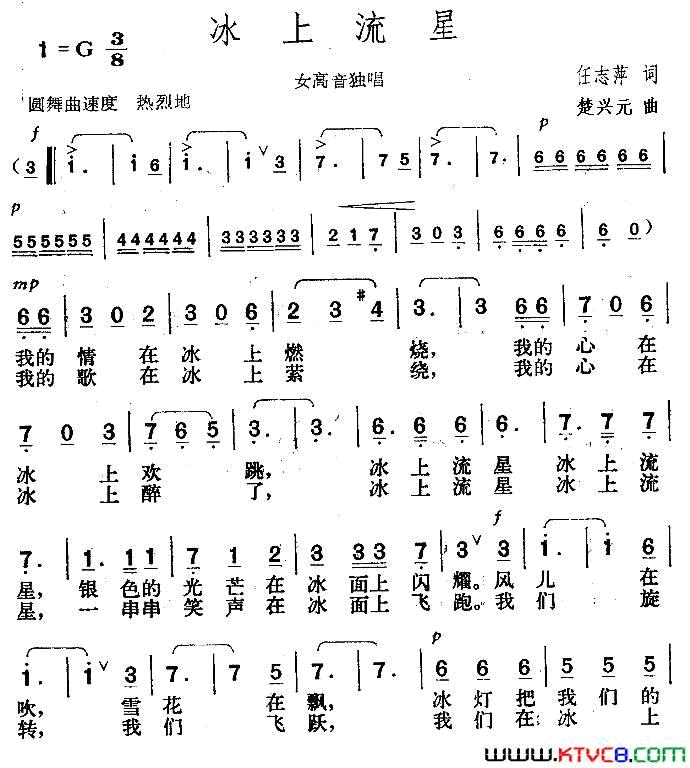 冰上流星
1=G 3/8
女高音独唱
任志萍 词
圆舞曲速度 热烈地
楚兴元 曲
f
p
(3 i. i 6 i. i V 3 7. 7 5 7. 7. 6 6 6 6 6 6
p
555555 444444 333333 2 1 7 3 0 3 6 6 6 6 6 0)
mp
6 6 3 0 2 3 0 6 2 3 #4 3. 3 6 6 7 0 6
我的 情 在 冰 上 燃 烧， 我的 心 在
我的 歌 在 冰 上 萦 绕， 我的 心 在
7 0 3 7 6 5 3. 3. 6. 6 6 6. 7. 7 7
冰 上 欢 跳， 冰上流 星 冰上流
冰 上 醉 了， 冰上流 星 冰上流
f
7. 1. 1 1 7 1 2 3 3 3 7 3 V 3 i. i 6
星， 银 色的 光 芒 在 冰 面上 闪 耀。风 儿 在
星， 一 串串 笑 声 在 冰 面上 飞 跑。我 们 旋
p
i. i V 3 7. 7 5 7. 7. 6 6 6 5 5 5
吹， 雪 花 在 飘， 冰灯把 我们的
转， 我 们 飞 跃， 我们在 冰 上
WWW.KTVC8.COM